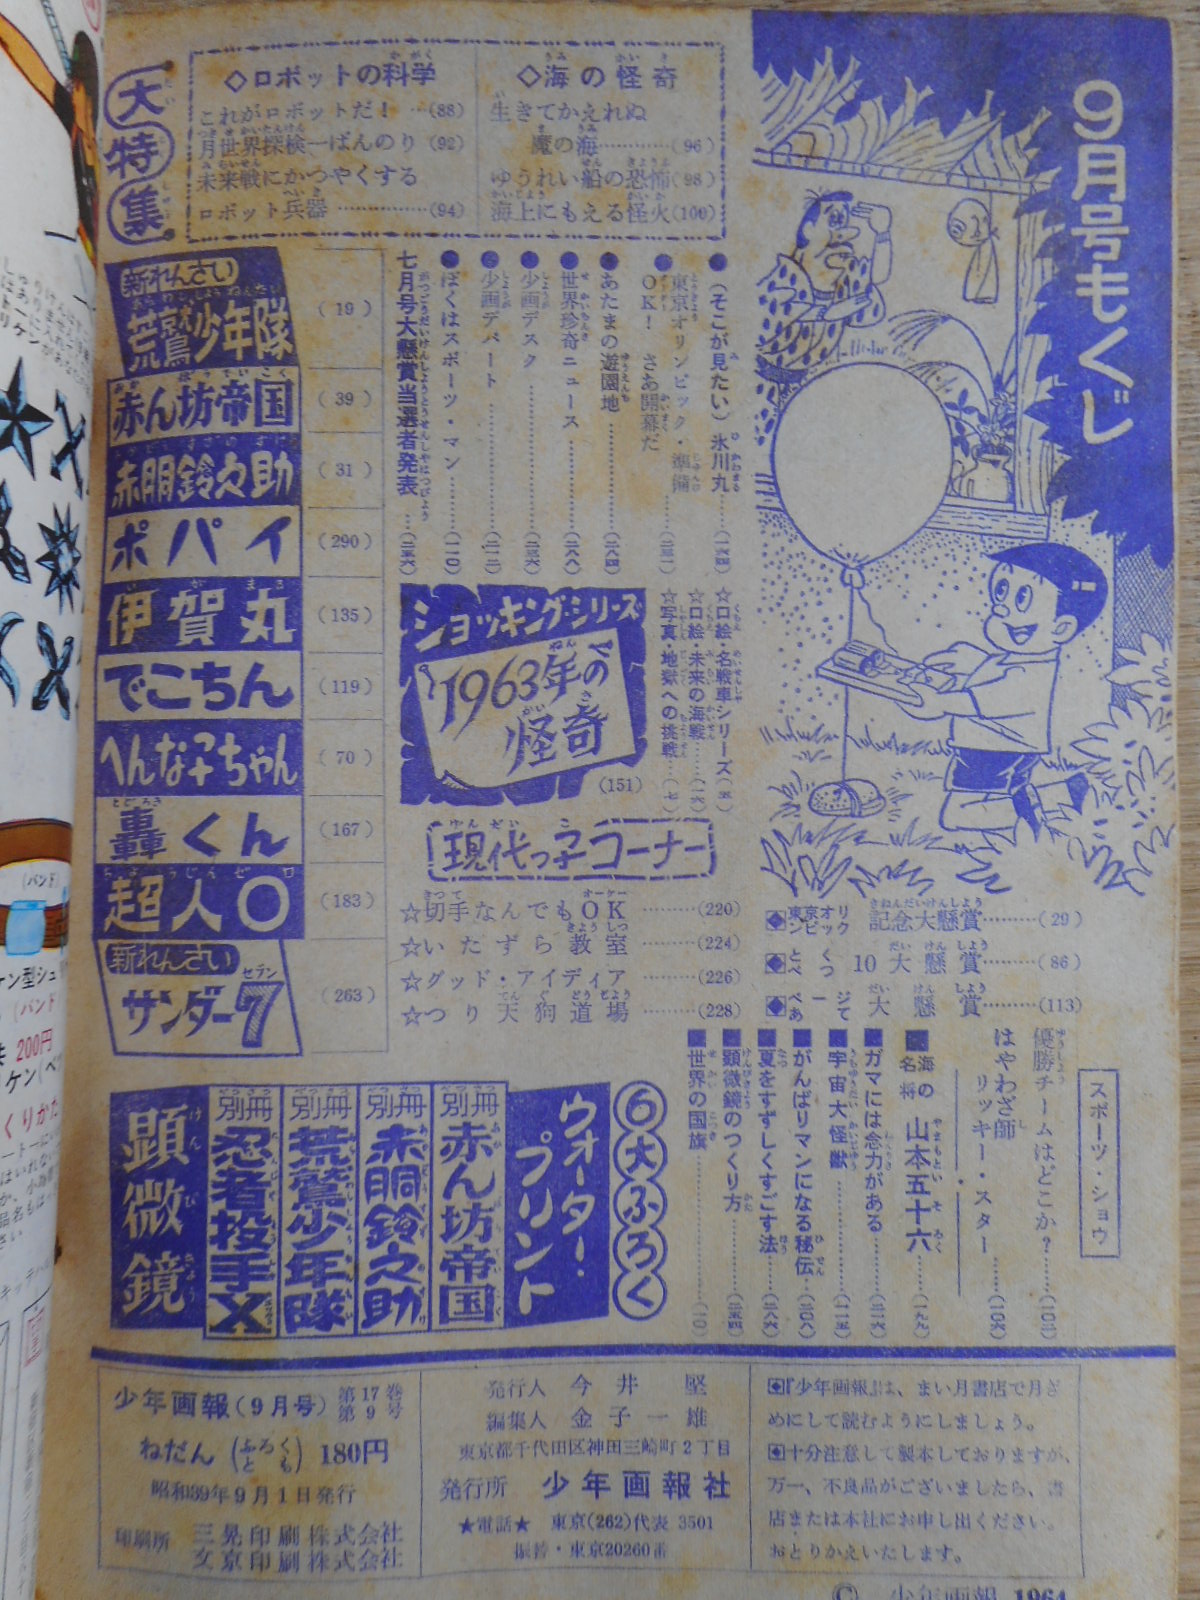 9月号もくじ
大特集
◇ロボットの科学
これがロボットだ！…(88)
月世界探検一ばんのり(92)
未来戦にかつやくする
ロボット兵器……………(94)
◇海の怪奇
生きてかえれぬ
魔の海…………(96)
ゆうれい船の恐怖(98)
海上にもえる怪火(100)
新れんさい
荒鷲少年隊
(19)
赤ん坊帝国
(39)
赤胴鈴之助
(31)
ポパイ
(290)
伊賀丸
(135)
でこちん
(119)
へんな子ちゃん
(70)
轟くん
(167)
超人０
(183)
新れんさい
サンダー7
(263)
●(そこが見たい)氷川丸……
●東京オリンピック・準備
OK！ さあ開幕だ
●あたまの遊園地……(二八四)
●世界珍奇ニュース……(二八八)
●少画デスク……(二三六)
●少画デパート……(二一二)
●ぼくはスポーツ・マン……(一一〇)
七月号大懸賞当選者発表…(二五六)
☆口絵・名戦車シリーズ(五)
☆口絵・未来の海戦……(一六)
☆写真・地獄への挑戦…(七)
ショッキング・シリーズ
1963年の
怪奇
(151)
現代っ子コーナー
☆切手なんでもOK………(220)
☆いたずら教室………(224)
☆グッド・アイディア………(226)
☆つり天狗道場………(228)
◆東京オリンピック記念大懸賞………(29)
◆とくべつ10大懸賞……(86)
◆ページあて大懸賞……(113)
スポーツ・ショウ
優勝チームはどこか？……(一〇二)
はやわざ師
リッキー・スター……(一〇六)
■海の名将 山本五十六……(一九九)
■ガマには念力がある……(二一六)
■宇宙大怪獣……(一一五)
■がんばりマンになる秘伝…(二〇八)
■夏をすずしくすごす法……(二八六)
■顕微鏡のつくり方……(二五四)
■世界の国旗……(一〇)
6大ふろく
ウォーター・プリント
別冊 赤ん坊帝国
別冊 赤胴鈴之助
別冊 荒鷲少年隊
別冊 忍者投手X
顕微鏡
少年画報(9月号) 第17巻第9号
ねだん(ふろくとも)180円
昭和39年9月1日発行
印刷所 三晃印刷株式会社
文京印刷株式会社
発行人 今井 堅
編集人 金子一雄
東京都千代田区神田三崎町2丁目
発行所 少年画報社
★電話★ 東京(262)代表 3501
振替・東京20260番
◆『少年画報』は、まい月書店で月ぎ
めにして読むようにしましょう。
◆十分注意して製本しておりますが、
万一、不良品がございましたら、書
店または本社にお申し出ください。
おとりかえいたします。
© 少年画報 1964
(バンド)
200円